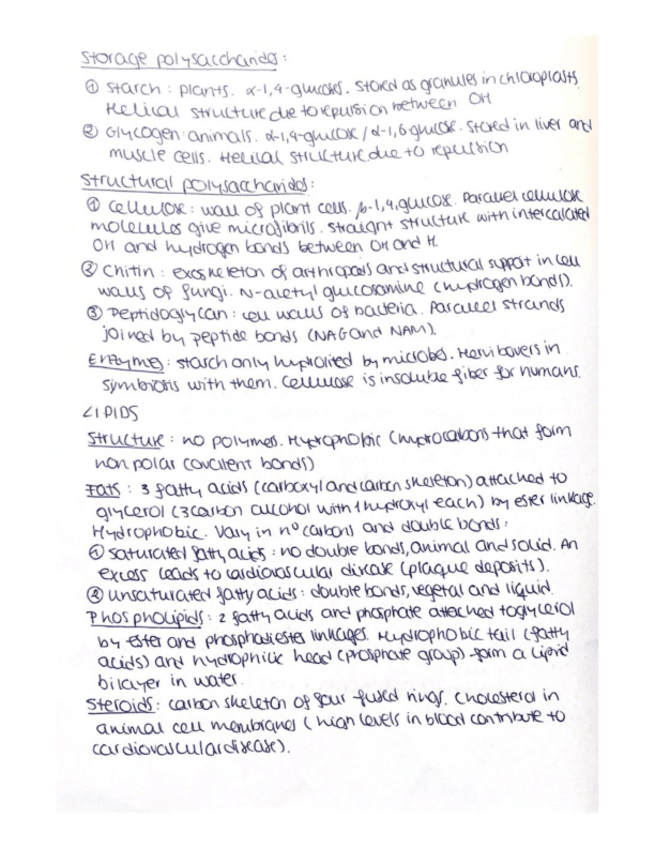 Storage polysaccharides:
① Starch: plants. α-1,4-glucoses. Stored as granules in chloroplasts.
Helical structure due to repulsion between OH
② Glycogen: animals. α-1,4-glucose / α-1,6 glucose. Stored in liver and
muscle cells. Helical structure due to repulsion
Structural polysaccharides:
① Cellulose: wall of plant cells. β-1,4,glucose. Parallel cellulose
molecules give microfibrils. Straight structure with intercalated
OH and hydrogen bonds between OH and H.
② Chitin: exoskeleton of arthropods and structural support in cell
walls of fungi. N-acetyl glucosamine (hydrogen bonds).
③ Peptidoglycan: cell walls of bacteria. Parallel strands
joined by peptide bonds (NAG and NAM).
Enzymes: starch only hydrolited by microbes. Hervibovers in
symbiotis with them. Cellulose is insoluble fiber for humans.
LIPIDS
Structure: no polymers. Hydrophobic (hydrocarbons that form
non polar covalent bonds)
Fats: 3 fatty acids (carboxyl and carbon skeleton) attached to
glycerol (3 carbon alcohol with 1 hydroxyl each) by ester linkage.
Hydrophobic. Vary in nº carbons and double bonds:
① Saturated fatty acids: no double bonds, animal and solid. An
excess leads to cardiovascular disease (plaque deposits).
② Unsaturated fatty acids: double bonds, vegetal and liquid.
Phospholipids: 2 fatty acids and phosphate attached to glycerol
by ester and phosphodiester linkages. Hydrophobic tail (fatty
acids) and hydrophilic head (phosphate group) form a lipid
bilayer in water.
Steroids: carbon skeleton of four fused rings. Cholesterol in
animal cell membranes (high levels in blood contribute to
cardiovascular disease).